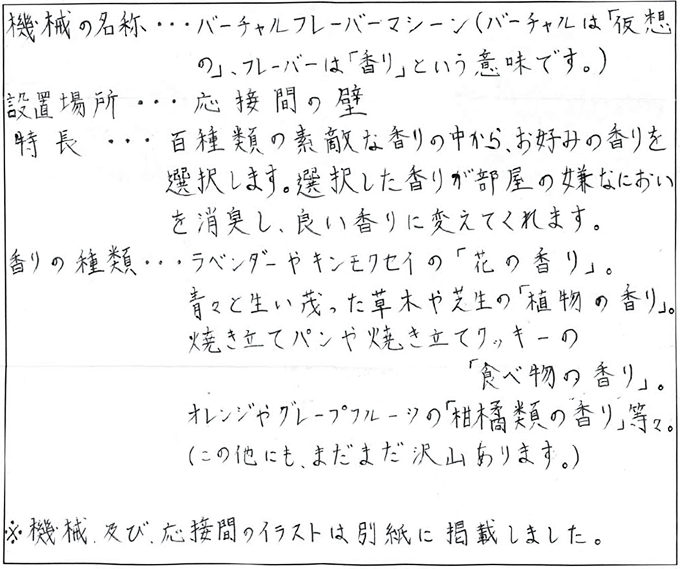 機械の名称・・・バーチャルフレーバーマシーン(バーチャルは「仮想
の」、フレーバーは「香り」という意味です。)
設置場所・・・応接間の壁
特長・・・百種類の素敵な香りの中から、お好みの香りを
選択します。選択した香りが部屋の嫌なにおい
を消臭し、良い香りに変えてくれます。
香りの種類・・・ラベンダーやキンモクセイの「花の香り」。
青々と生い茂った草木や芝生の「植物の香り」。
焼き立てパンや焼き立てクッキーの
「食べ物の香り」。
オレンジやグレープフルーツの「柑橘類の香り」等々。
(この他にも、まだまだ沢山あります。)
※機械、及び、応接間のイラストは別紙に掲載しました。